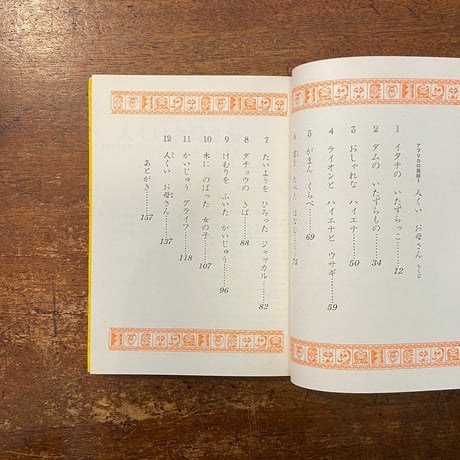 アフリカの民話1
人くい お母さん もくじ
1 イタチの いたずらっこ……12
2 ダムの いたずらもの……34
3 おしゃれな ハイエナ……50
4 ライオンと ハイエナと ウサギ……59
5 がまん くらべ……69
6 たべた はなし……75
7 たいようを ひろった ジャッカル……82
8 ダチョウの きば……88
9 けむりを ふいた かいじゅう……96
10 木に のぼった 女の子……107
11 かいじゅう グライツ……118
12 人くい お母さん……137
あとがき……157